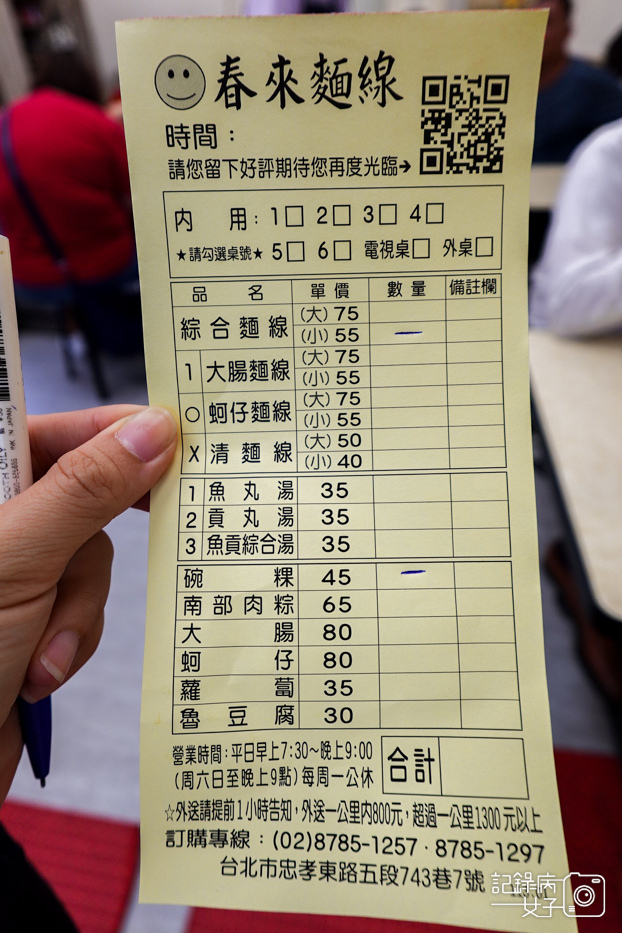 春來麵線
時間：
請您留下好評期待您再度光臨➔
內用：1□ 2□ 3□ 4□
★請勾選桌號★ 5□ 6□ 電視桌□ 外桌□
品名 單價 數量 備註欄
綜合麵線 (大) 75
(小) 55 一
1 大腸麵線 (大) 75
(小) 55
○ 蚵仔麵線 (大) 75
(小) 55
X 清麵線 (大) 50
(小) 40
1 魚丸湯 35
2 貢丸湯 35
3 魚貢綜合湯 35
碗粿 45 一
南部肉粽 65
大腸 80
蚵仔 80
蘿蔔 35
魯豆腐 30
營業時間：平日早上7:30～晚上9:00
(周六日至晚上9點) 每周一公休
合計
☆外送請提前1小時告知，外送一公里內800元，超過一公里1300元以上
訂購專線：(02)8785-1257．8785-1297
台北市忠孝東路五段743巷7號
記錄病
女子